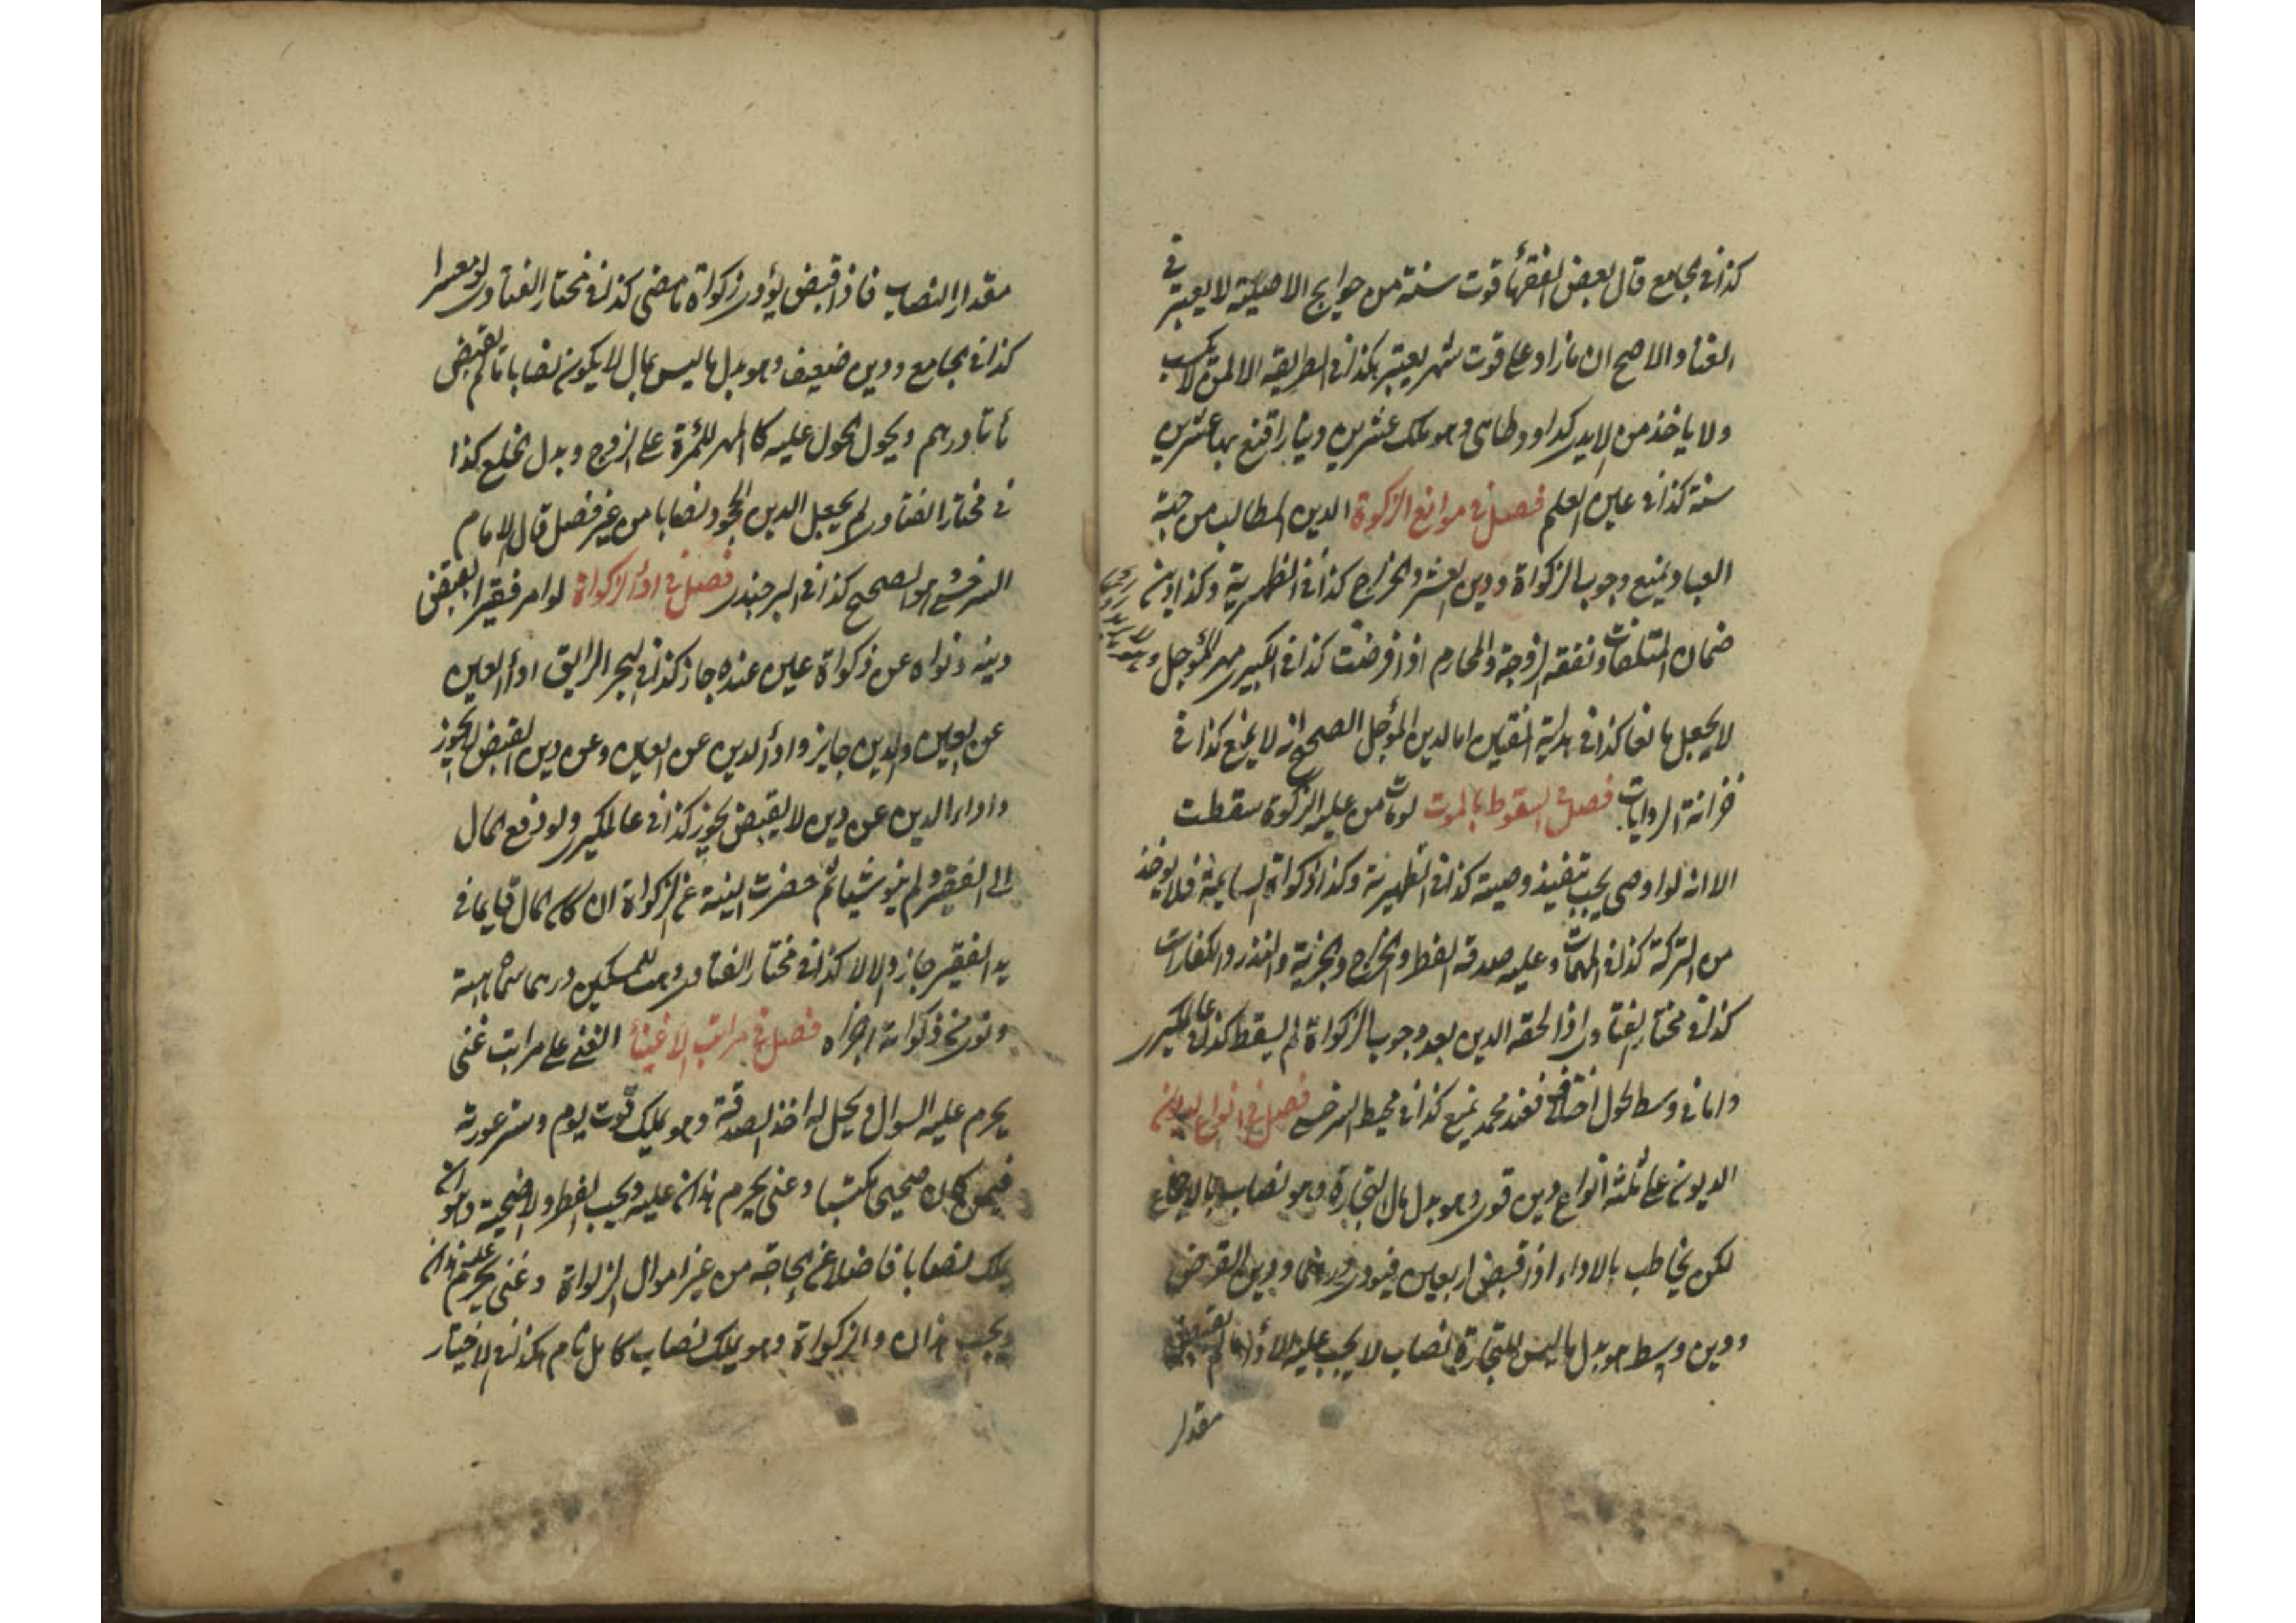 كذا في الجامع قال بعض الفقهاء قوت سنة من حوايج الاصلية لا يعتبر في
الغنا والاصح ان ما زاد على قوت شهر يعتبر هكذا في الطريقة الا لمن لا يكسب
ولا ياخذ من الايدي كداود طائي وهو ملك عشرين دينارا قنع بها عشرين
سنة كذا في عين العلم فصل في موانع الزكوة الدين المطالب من جهة
العباد يمنع وجوب الزكواة ودين العشر والخراج كذا في الظهيرية وكذا دين
ضمان المتلفات ونفقة الزوجة والمحارم اذا فرضت كذا في الكبيري مهر المؤجل
لا يجعل مانعا كذا في هدية المتقين اما الدين المؤجل الصحيح انه لا يمنع كذا في
خزانة الروايات فصل في السقوط بالموت لو مات من عليه الزكوة سقطت
الا انه لو اوصى يجب تنفيذ وصيته كذا في الظهيرية وكذا زكواة السايمة فلا يوخذ
من التركة كذا في المهمات وعليه صدقة الفطر والخراج والجزية والنذر والكفارات
كذا في مختار الفتاوى اذا لحقه الدين بعد وجوب الزكواة لم يسقط كذا في عالمكيرى
واما في وسط الحول فعند محمد يمنع كذا في محيط السرخسي فصل في انواع الديون
الديون على ثلثة انواع دين قوي وهو بدل مال التجارة وهو نصاب بالاجماع
لكن يخاطب بالاداء اذا قبض اربعين فيودي درهما ودين القرض
ودين وسط هو بدل ما ليس للتجارة نصاب لا يجب عليه الاداء ما لم يقبض
مقدار
مقدار النصاب فاذا قبض يؤدي زكواة ما مضى كذا في مختار الفتاوى لو معسرا
كذا في الجامع ودين ضعيف وهو بدل ما ليس بمال لا يكون نصابا ما لم يقبض
مأتا درهم ويحول الحول عليه كالمهر للمرءة على الزوج وبدل الخلع كذا
في مختار الفتاوى لم يجعل الدين المجحود نصابا من غير فصل قال الامام
السرخسي هو الصحيح كذا في البرجندي فصل في اداء الزكواة لو امر فقيرا بقبض
دينه ونواه عن زكواة عين عنده جاز كذا في البحر الرايق اداء العين
عن العين والدين جايز واداء الدين عن العين وعن دين القبض لا يجوز
واداء الدين عن دين لا يقبض يجوز كذا في عالمكيرى ولو دفع المال
الى الفقير ولم ينو شيئا ثم حضرت النية عن الزكواة ان كان المال قايما في
يد الفقير جاز والا لا كذا في مختار الفتاوى وهبت للمسكين درهما سماه هبة
ونوى زكواته اجزاه فصل في مراتب الاغنياء الغني على مراتب غني
يحرم عليه السوال ويحل له اخذ الصدقة وهو يملك قوت يوم وستر عورته
فيمن كان صحيحا مكتسبا وغني يحرم هذان عليه ويجب الفطر والاضحية وهو ان
يملك نصابا فاضلا عن الحاجة من غير اموال الزكواة وغني يحرم عليه هذان
ويجب هذان والزكواة وهو يملك نصاب كامل تام هكذا في الاختيار